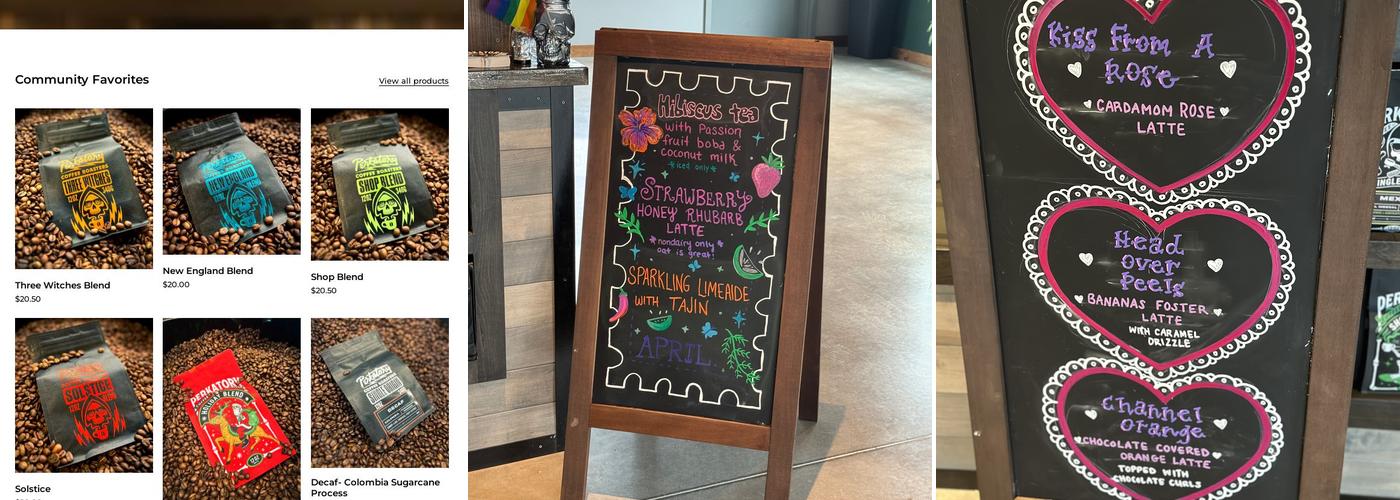 Community Favorites
View all products
Perkatory
COFFEE ROASTERS
THREE WITCHES
12OZ
340G
Perkatory
COFFEE ROASTERS
NEW ENGLAND
12OZ
Perkatory
COFFEE ROASTERS
SHOP BLEND
12OZ
340G
Three Witches Blend
$20.50
New England Blend
$20.00
Shop Blend
$20.50
SOLSTICE
12OZ
PERKATORY
HOLIDAY BLEND
Perkatory
COFFEE ROASTERS
DECAF
Solstice
Decaf- Colombia Sugarcane
Process
Hibiscus tea
with Passion
fruit boba &
coconut milk
*iced only*
STRAWBERRY
HONEY RHUBARB
LATTE
*nondairy only*
oat is great!
SPARKLING LIMEAIDE
WITH TAJIN
APRIL
Kiss From A
Rose
CARDAMOM ROSE
LATTE
Head
Over
Peels
BANANAS FOSTER
LATTE
WITH CARAMEL
DRIZZLE
Channel
Orange
CHOCOLATE COVERED
ORANGE LATTE
TOPPED WITH
CHOCOLATE CURLS